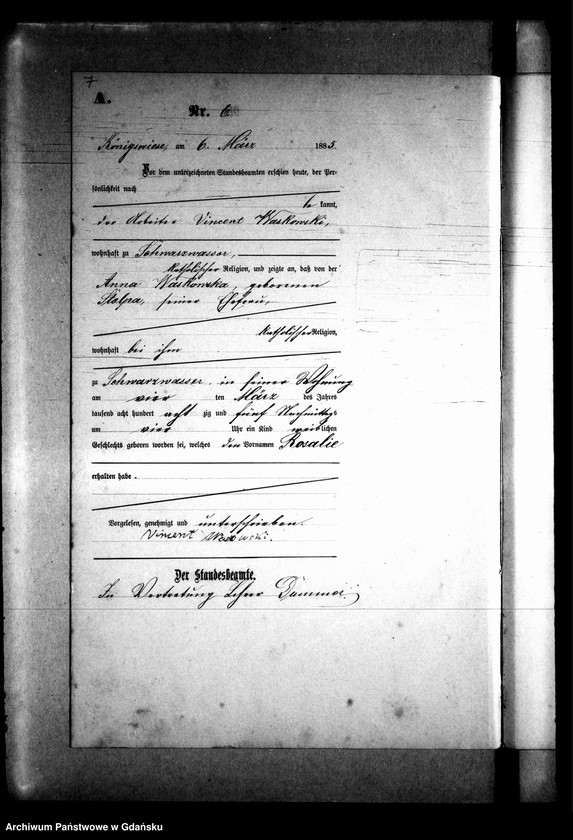 7
A.
Nr. 6
Königswiese, am 6. März 1885.
Vor dem unterzeichneten Standesbeamten erschien heute, der Per-
sönlichkeit nach
be kannt,
der Arbeiter Vincent Waskowski,
wohnhaft zu Schwarzwasser,
katholischer Religion, und zeigte an, daß von der
Anna Waskowska, geborenen
Stolpa, seiner Ehefrau,
katholischer Religion,
wohnhaft bei ihm
zu Schwarzwasser, in seiner Wohnung
am vier ten März des Jahres
tausend acht hundert acht zig und fünf Nachmittags
um vier Uhr ein Kind weiblichen
Geschlechts geboren worden sei, welches den Vornamen Rosalie
erhalten habe.
Vorgelesen, genehmigt und unterschrieben.
Vincent
Der Standesbeamte.
In Vertretung Lehrer
Archiwum Państwowe w Gdańsku